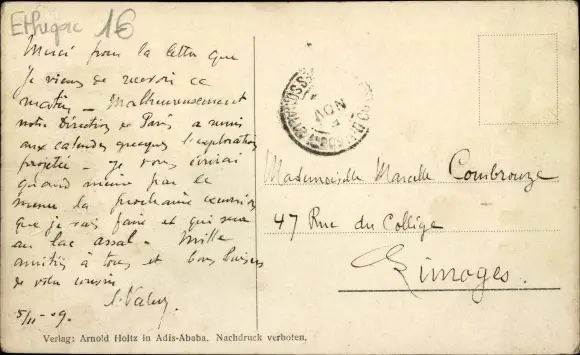 Ethiopie 16
Merci pour la lettre que
je viens de recevoir ce
matin – Malheureusement
notre Direction de Paris a remis
aux calendes grecques l'exploration
projetée – Je vous écrirai
quand même par le
menu la prochaine excursion
que je vais faire et qui sera
au lac assal – Mille
amitiés à tous et bons baisers
de votre cousin
5/11 - 09.
Mademoiselle Marcelle Combrouze
47 Rue du Collège
Limoges.
Verlag: Arnold Holtz in Adis-Ababa. Nachdruck verboten.